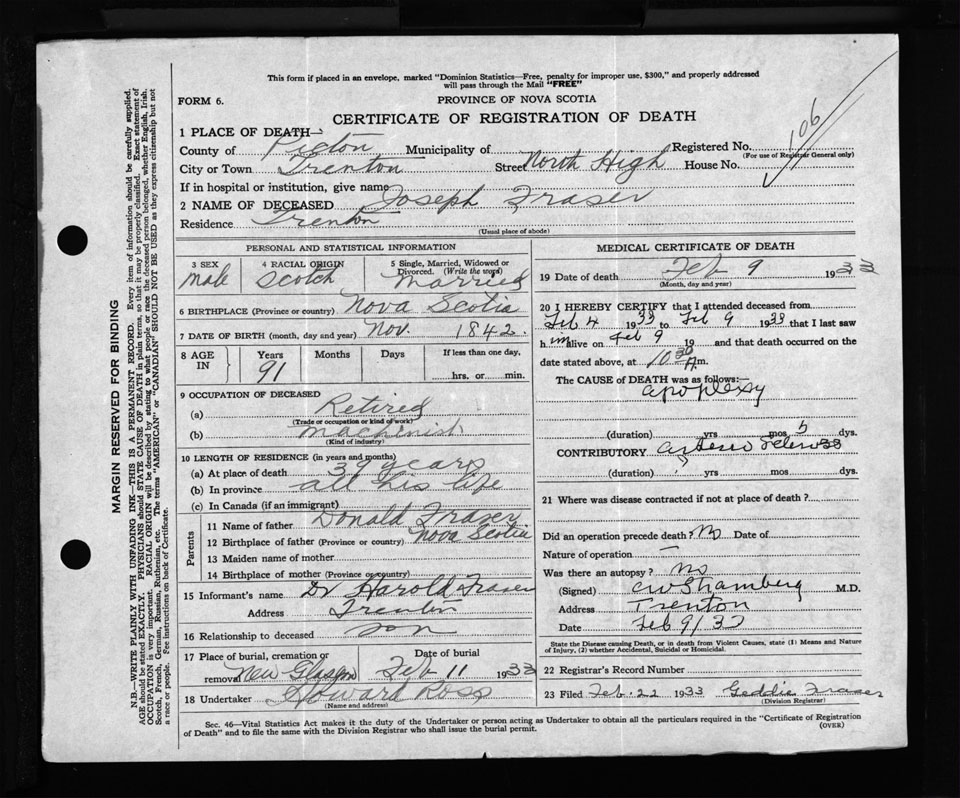 This form if placed in an envelope, marked "Dominion Statistics—Free, penalty for improper use, $300," and properly addressed
will pass through the Mail "FREE"
FORM 6.
PROVINCE OF NOVA SCOTIA
CERTIFICATE OF REGISTRATION OF DEATH
106
1 PLACE OF DEATH—
County of Pictou Municipality of Registered No.
(For use of Registrar General only)
City or Town Trenton Street North High House No.
If in hospital or institution, give name
2 NAME OF DECEASED Joseph Fraser
Residence Trenton
(Usual place of abode)
PERSONAL AND STATISTICAL INFORMATION
3 SEX 4 RACIAL ORIGIN 5 Single, Married, Widowed or
Divorced. (Write the word)
male Scotch Married
6 BIRTHPLACE (Province or country) Nova Scotia
7 DATE OF BIRTH (month, day and year) Nov. 1842.
8 AGE IN Years Months Days If less than one day,
91 hrs. or min.
9 OCCUPATION OF DECEASED
(a) Retired
(Trade or occupation or kind of work)
(b) Machinist
(Kind of industry)
10 LENGTH OF RESIDENCE (in years and months)
(a) At place of death 39 years
(b) In province all his life
(c) In Canada (if an immigrant)
Parents
11 Name of father Donald Fraser
12 Birthplace of father (Province or country) Nova Scotia
13 Maiden name of mother
14 Birthplace of mother (Province or country)
15 Informant's name Dr Harold Fraser
Address Trenton
16 Relationship to deceased son
17 Place of burial, cremation or Date of burial
removal New Glasgow Feb 11 1933
18 Undertaker Howard Ross
(Name and address)
MEDICAL CERTIFICATE OF DEATH
19 Date of death Feb 9 193
(Month, day and year)
20 I HEREBY CERTIFY that I attended deceased from
Feb 4 1933 to Feb 9 1933 that I last saw
him alive on Feb 9 19 and that death occurred on the
date stated above, at 10 30 A.m.
The CAUSE OF DEATH was as follows:—
apoplexy
(duration) yrs mos 5 dys.
CONTRIBUTORY
(duration) yrs mos dys.
21 Where was disease contracted if not at place of death?
Did an operation precede death? No Date of
Nature of operation —
Was there an autopsy? No
(Signed) M.D.
Address Trenton
Date Feb 9/33
State the Disease causing Death, or in death from Violent Causes, state (1) Means and Nature
of Injury, (2) whether Accidental, Suicidal or Homicidal.
22 Registrar's Record Number
23 Filed Feb. 22 1933 Geddie Fraser
(Division Registrar)
Sec. 46—Vital Statistics Act makes it the duty of the Undertaker or person acting as Undertaker to obtain all the particulars required in the "Certificate of Registration
of Death" and to file the same with the Division Registrar who shall issue the burial permit.
(OVER)
MARGIN RESERVED FOR BINDING
N.B.—WRITE PLAINLY WITH UNFADING INK—THIS IS A PERMANENT RECORD. Every item of information should be carefully supplied.
AGE should be stated EXACTLY. PHYSICIANS should STATE CAUSE OF DEATH in plain terms, so that it may be properly classified. Exact statement of
OCCUPATION is very important. RACIAL ORIGIN will be described by stating to what people or race the deceased person belonged, whether English, Irish,
Scotch, French, German, Russian, Ruthenian, etc. The terms "AMERICAN" or "CANADIAN" SHOULD NOT BE USED as they express citizenship but not
a race or people. See instructions on back of Certificate.